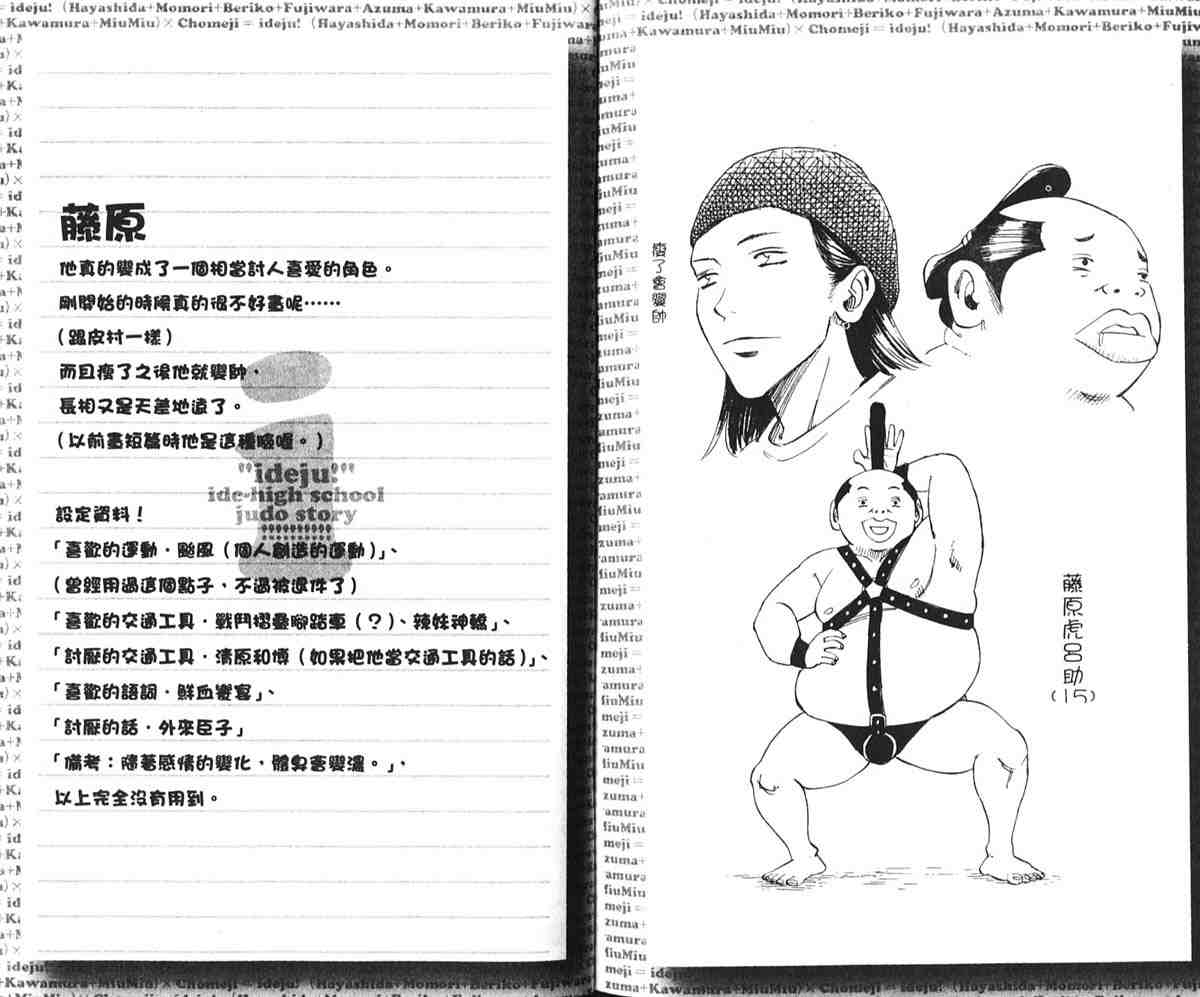 ideju! (Hayashida+Momori+Beriko+Fujiwara+Azuma+Kawamura+MiuMiu)×
藤原
他真的變成了一個相當討人喜愛的角色。
剛開始的時候真的很不好畫呢……
(跟皮村一樣)
而且瘦了之後他就變帥、
長相又是天差地遠了。
(以前畫短篇時他是這種臉喔。)
"ideju!"
ide-high school
judo story
設定資料！
「喜歡的運動．颱風(個人創造的運動)」、
(曾經用過這個點子、不過被退件了)
「喜歡的交通工具．戰鬥摺疊腳踏車(？)、辣妹神轎」、
「討厭的交通工具．清原和博(如果把他當交通工具的話)」、
「喜歡的語詞．鮮血饗宴」、
「討厭的話．外來臣子」
「備考：隨著感情的變化、體臭會變濃。」、
以上完全沒有用到。
ideju! (Hayashida+Momori+Beriko+Fujiwara+Azuma+Kawamura+MiuMiu
+Kawamura+MiuMiu)× Chomeji = ideju! (Hayashida+Momori+Beriko+Fujiw
瘦了會變帥
藤原虎呂助
(15)
+Kawamura+MiuMiu)× Chomeji = ideju! (Hayashida+Momori+Beriko+Fujiwar
zuma+Kawamura+MiuMiu)× Chomeji = ideju! (Hayashida+Momori+Beriko+Fuj